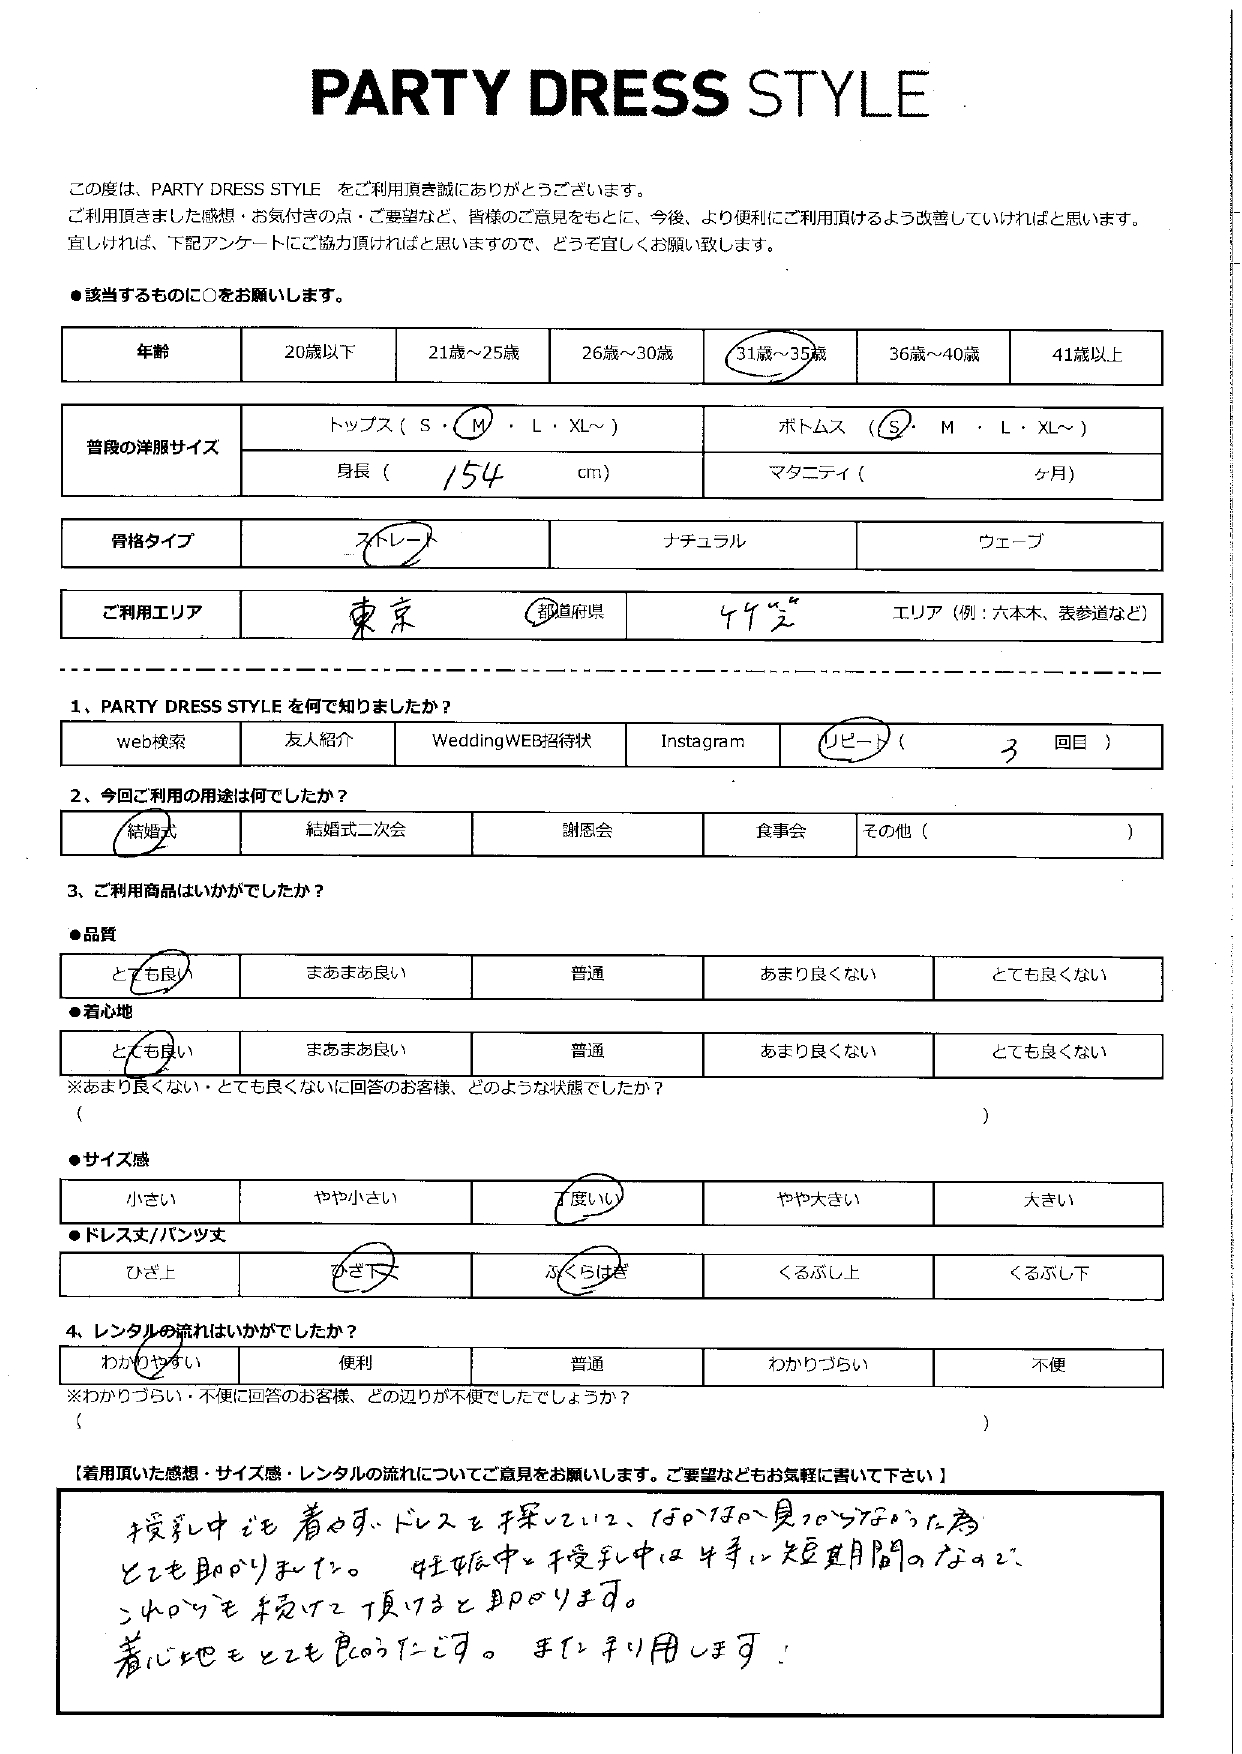 PARTY DRESS STYLE
この度は、PARTY DRESS STYLE をご利用頂き誠にありがとうございます。
ご利用頂きました感想・お気付きの点・ご要望など、皆様のご意見をもとに、今後、より便利にご利用頂けるよう改善していければと思います。
宜しければ、下記アンケートにご協力頂ければと思いますので、どうぞ宜しくお願い致します。
●該当するものに○をお願いします。
年齢 20歳以下 21歳～25歳 26歳～30歳 31歳～35歳 36歳～40歳 41歳以上
普段の洋服サイズ トップス ( S ・ M ・ L ・ XL～ ) ボトムス ( S ・ M ・ L ・ XL～ )
身長 ( 154 cm) マタニティ ( ヶ月)
骨格タイプ ストレート ナチュラル ウェーブ
ご利用エリア 東京 都道府県 竹芝 エリア（例：六本木、表参道など）
1、PARTY DRESS STYLE を何で知りましたか？
web検索 友人紹介 WeddingWEB招待状 Instagram リピート ( 3 回目 )
2、今回ご利用の用途は何でしたか？
結婚式 結婚式二次会 謝恩会 食事会 その他 ( )
3、ご利用商品はいかがでしたか？
●品質
とても良い まあまあ良い 普通 あまり良くない とても良くない
●着心地
とても良い まあまあ良い 普通 あまり良くない とても良くない
※あまり良くない・とても良くないに回答のお客様、どのような状態でしたか？
( )
●サイズ感
小さい やや小さい 丁度いい やや大きい 大きい
●ドレス丈/パンツ丈
ひざ上 ひざ下 ふくらはぎ くるぶし上 くるぶし下
4、レンタルの流れはいかがでしたか？
わかりやすい 便利 普通 わかりづらい 不便
※わかりづらい・不便に回答のお客様、どの辺りが不便でしたでしょうか？
( )
【着用頂いた感想・サイズ感・レンタルの流れについてご意見をお願いします。ご要望などもお気軽に書いて下さい】
授乳中でも着やすいドレスを探していて、なかなか見つからなかった為
とても助かりました。妊娠中と授乳中は本当に短期間のなので、
これからも続けて頂けると助かります。
着心地もとても良かったです。また利用します！